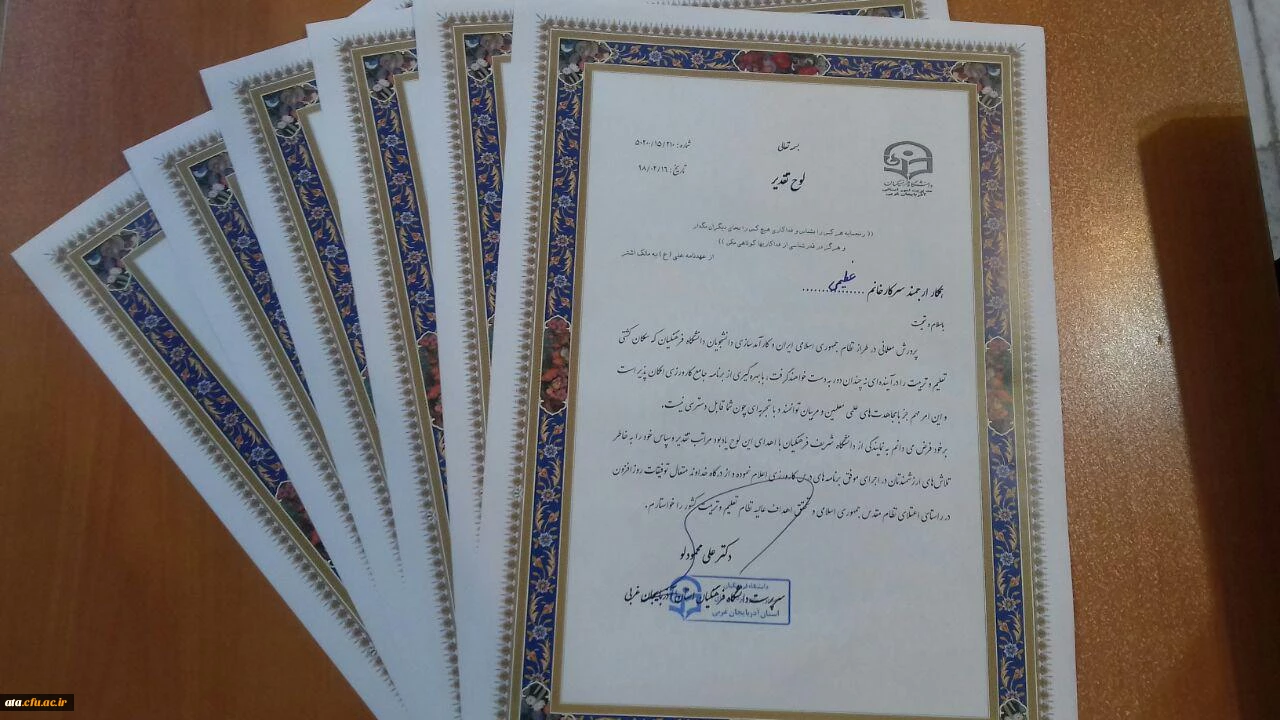 بسمه تعالی
شماره: ۵۰۲۰۰/۱۵/۲۱۰
تاریخ: ۹۸/۰۲/۱۶
لوح تقدیر
دانشگاه فرهنگیان
آذربایجان غربی
(( رنج‌مایه هر کس را بشناس و فداکاری هیچ کس را بجای دیگران نگذار
و هرگز در قدرشناسی از فداکاریها کوتاهی مکن ))
از عهدنامه علی (ع) به مالک اشتر
همکار ارجمند سرکار خانم عظیمی
باسلام و تحیت
پرورش معلمانی در طراز نظام جمهوری اسلامی ایران و کارآمدسازی دانشجویان دانشگاه فرهنگیان که سکان کشتی
تعلیم و تربیت را در آینده‌ای نه چندان دور به دست خواهند گرفت، با بهره گیری از برنامه جامع کارورزی امکان پذیر است
و این امر مهم جز با مجاهدت‌های علمی معلمین و مربیان توانمند و با تجربه‌ای چون شما قابل دسترسی نیست.
برخود فرض می دانم به نمایندگی از دانشگاه شریف فرهنگیان با اهدای این لوح یادبود مراتب تقدیر و سپاس خود را به خاطر
تلاش‌های ارزشمندتان در اجرای موفق برنامه‌های درس کارورزی اعلام نموده و از درگاه خداوند متعال توفیقات روزافزون
در راستای اعتلای نظام مقدس جمهوری اسلامی و تحقق اهداف عالیه نظام تعلیم و تربیت کشور را خواستارم.
دکتر علی محمودلو
سرپرست دانشگاه فرهنگیان استان آذربایجان غربی
دانشگاه فرهنگیان
استان آذربایجان غربی
ata.cfu.ac.ir